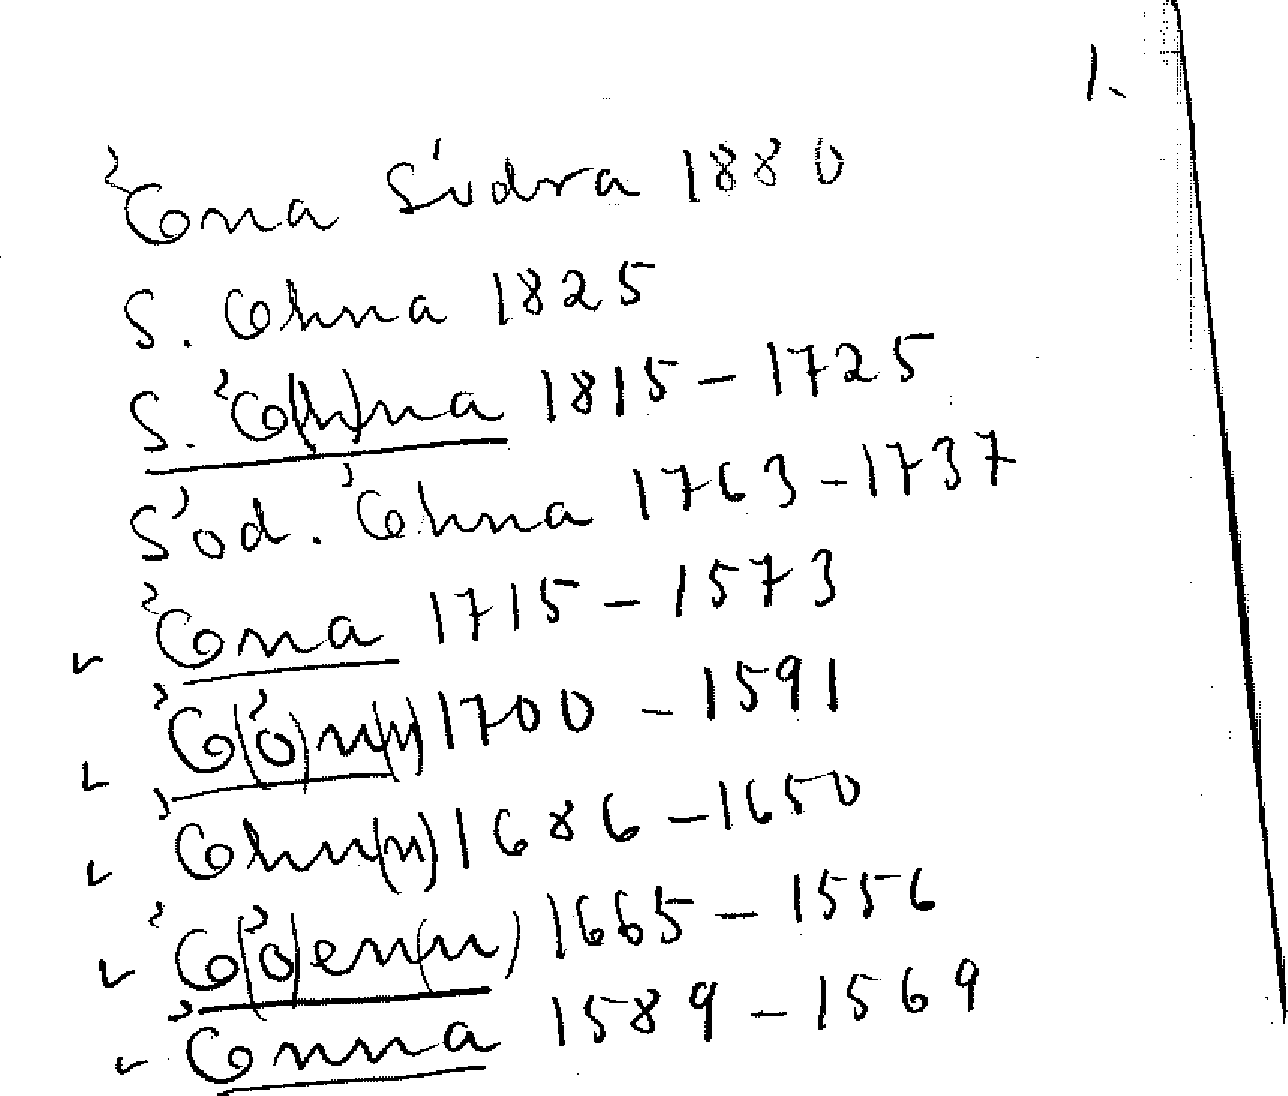 1.
Öna Södra 1880
S. Öhna 1825
S. Ö(h)na 1815-1725
Söd. Öhna 1763-1737
✓ Öna 1715-1573
✓ Ö(ö)n(n) 1700-1591
✓ Öhn(n) 1686-1650
✓ Ö(ö)en(n) 1665-1556
✓ Önna 1589-1569